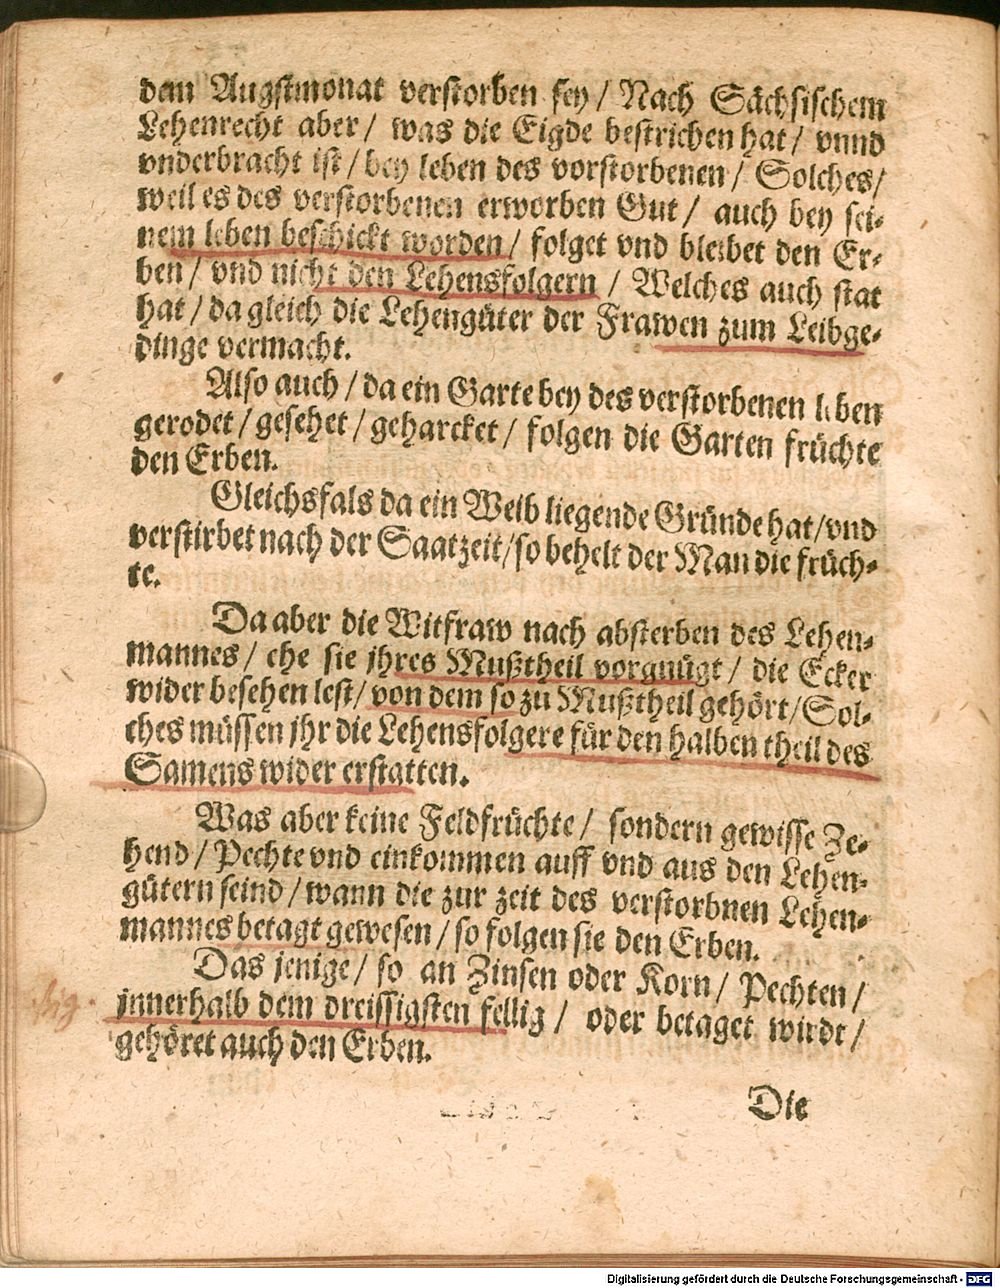 dem Augstmonat verstorben sey / Nach Sächsischem
Lehenrecht aber / was die Eigde bestrichen hat / vnnd
vnderbracht ist / bey leben des vorstorbenen / Solches /
weil es des verstorbenen erworben Gut / auch bey sei-
nem leben beschickt worden / folget vnd bleibet den Er-
ben / vnd nicht den Lehensfolgern / Welches auch stat
hat / da gleich die Lehengüter der Frawen zum Leibge-
dinge vermacht.
Also auch / da ein Garte bey des verstorbenen leben
gerodet / gesehet / geharcket / folgen die Garten früchte
den Erben.
Gleichsfals da ein Weib liegende Gründe hat / vnd
verstirbet nach der Saatzeit / so behelt der Man die früch-
te.
Da aber die Witfraw nach absterben des Lehen-
mannes / ehe sie jhres Mußtheil vorgnügt / die Ecker
wider besehen lest / von dem so zu Mußtheil gehört / Sol-
ches müssen jhr die Lehensfolgere für den halben theil des
Samens wider erstatten.
Was aber keine Feldfrüchte / sondern gewisse Ze-
hend / Pechte vnd einkommen auff vnd aus den Lehen-
gütern seind / wann die zur zeit des verstorbnen Lehen-
mannes betagt gewesen / so folgen sie den Erben.
Das jenige / so an Zinsen oder Korn / Pechten /
jnnerhalb dem dreissigsten fellig / oder betaget wirdt /
gehöret auch den Erben.
Die
Digitalisierung gefördert durch die Deutsche Forschungsgemeinschaft - DFG